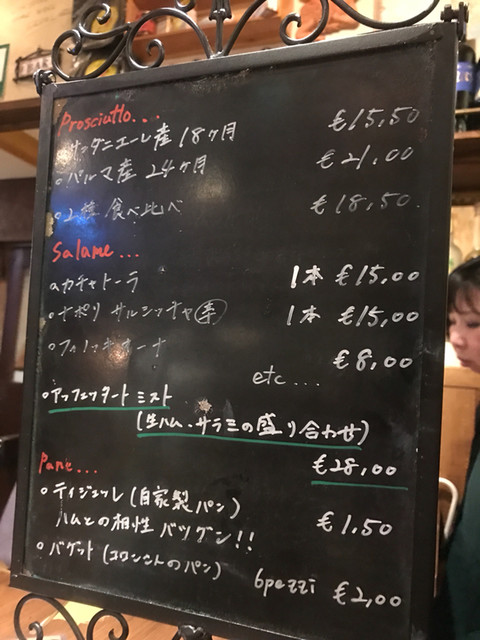 Prosciutto...
○サンダニエーレ産 18ヶ月 €15,50
○パルマ産 24ヶ月 €21.00
○2種 食べ比べ €18,50.
Salame...
○カチャトーラ 1本 €15,00
○ナポリ サルシッチャ 1本 €15,00
○フィノッキオーナ €8,00
etc...
○アッフェッタート ミスト
(生ハム、サラミの盛り合わせ)
€28,00
Pane...
○ティジェッレ(自家製パン)
ハムとの相性 バツグン!! €1.50
○バゲット(のパン) 6pezzi €2,00